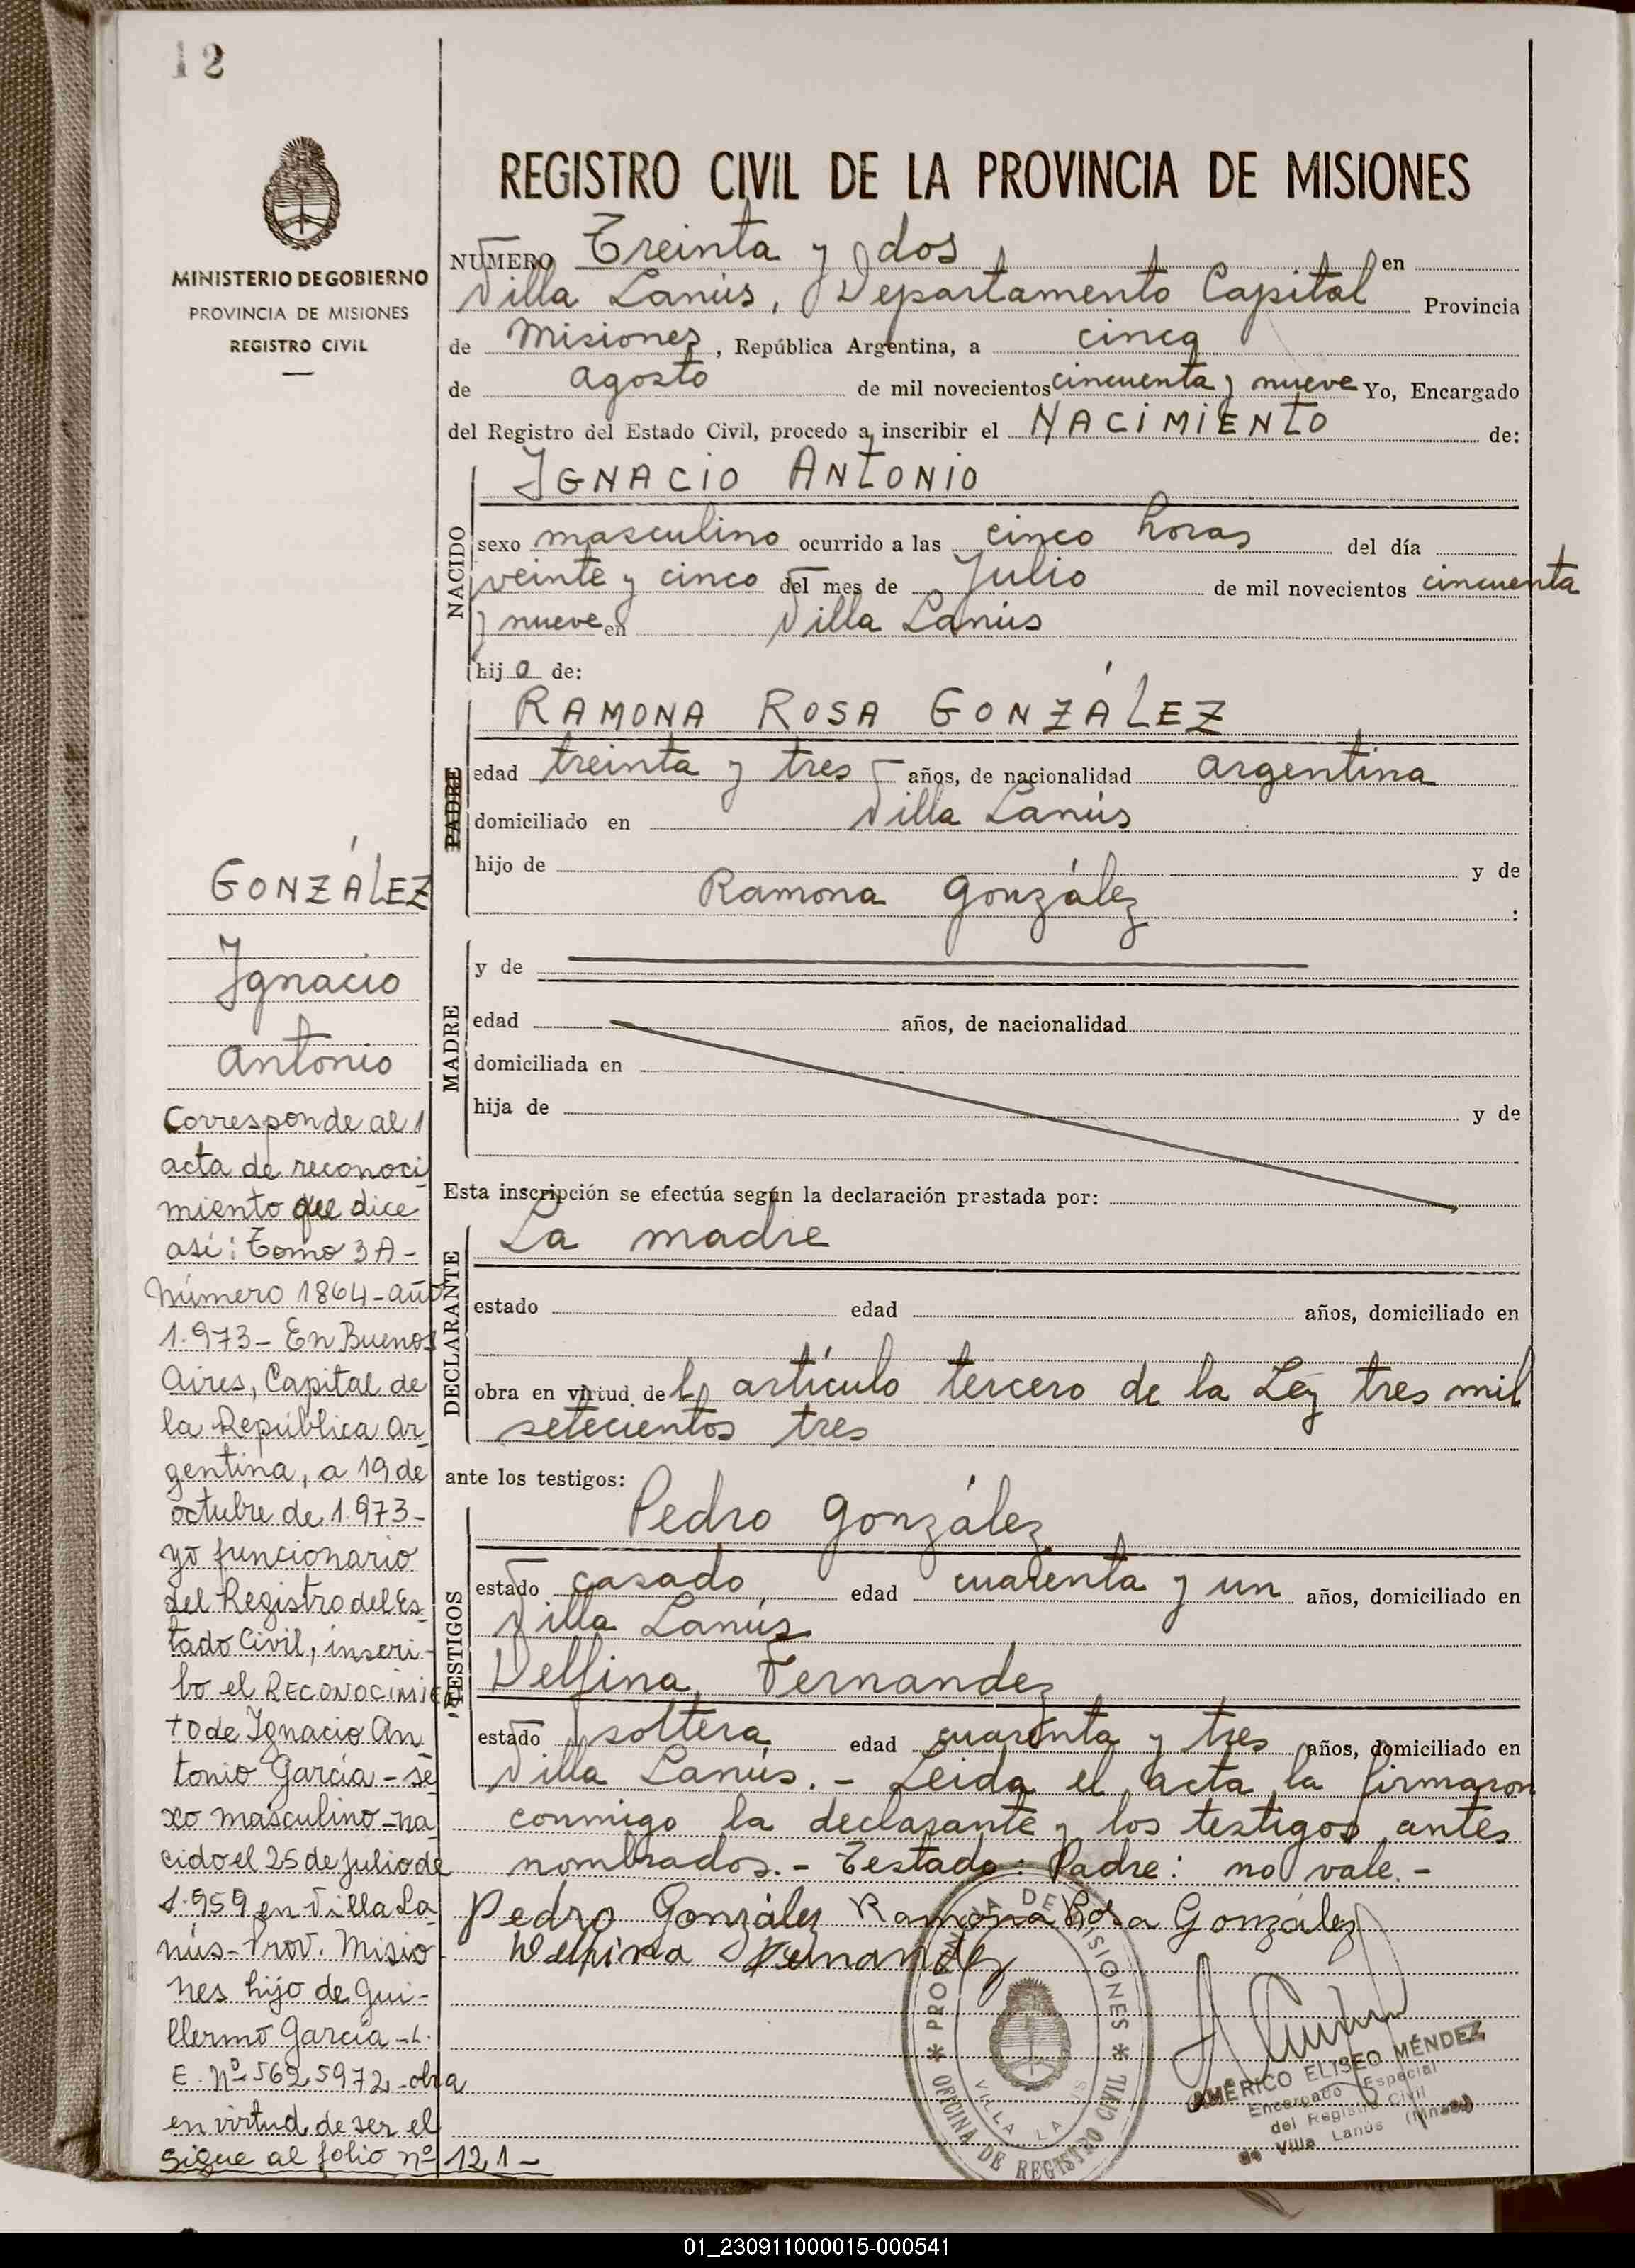 12
MINISTERIO DE GOBIERNO
PROVINCIA DE MISIONES
REGISTRO CIVIL
GONZÁLEZ
Ignacio
Antonio
Corresponde al
acta de reconoci
miento que dice
asi: Tomo 3 A-
Número 1864-año
1.973- En Buenos
Aires, Capital de
la República Ar
gentina, a 19 de
octubre de 1.973-
yo funcionario
del Registro del Es
tado Civil, inscri-
bo el RECONOCIMIEN
to de Ignacio An
tonio García - se
xo masculino - na
cido el 25 de julio de
1.959 en Villa La
nús - Prov. Misio
nes hijo de Gui-
llermo García - L.
E. Nº 5625972 - obra
en virtud de ser el
sigue al folio nº 121-
REGISTRO CIVIL DE LA PROVINCIA DE MISIONES
NUMERO Treinta y dos en
Villa Lanús, Departamento Capital Provincia
de Misiones, República Argentina, a cinco
de agosto de mil novecientos cincuenta y nueve Yo, Encargado
del Registro del Estado Civil, procedo a inscribir el NACIMIENTO de:
NACIDO
IGNACIO ANTONIO
sexo masculino ocurrido a las cinco horas del día
veinte y cinco del mes de Julio de mil novecientos cincuenta
y nueve en Villa Lanús
hijo de:
PADRE
RAMONA ROSA GONZÁLEZ
edad treinta y tres años, de nacionalidad argentina
domiciliado en Villa Lanús
hijo de y de
Ramona González :
MADRE
y de
edad años, de nacionalidad
domiciliada en
hija de y de
Esta inscripción se efectúa según la declaración prestada por:
DECLARANTE
La madre
estado edad años, domiciliado en
obra en virtud del artículo tercero de la Ley tres mil
setecientos tres
ante los testigos:
TESTIGOS
Pedro González
estado casado edad cuarenta y un años, domiciliado en
Villa Lanús
Delfina Fernandez
estado soltera edad cuarenta y tres años, domiciliado en
Villa Lanús. - Leida el acta la firmaron
conmigo la declarante y los testigos antes
nombrados. - Testado: Padre: no vale. -
Pedro González Ramona Rosa González
Delfina Fernandez
PROVINCIA DE MISIONES
OFICINA DE REGISTRO CIVIL
VILLA LANUS
AMÉRICO ELISEO MÉNDEZ
Encargado Especial
del Registro Civil
de Villa Lanús (Mnes)
01_230911000015-000541